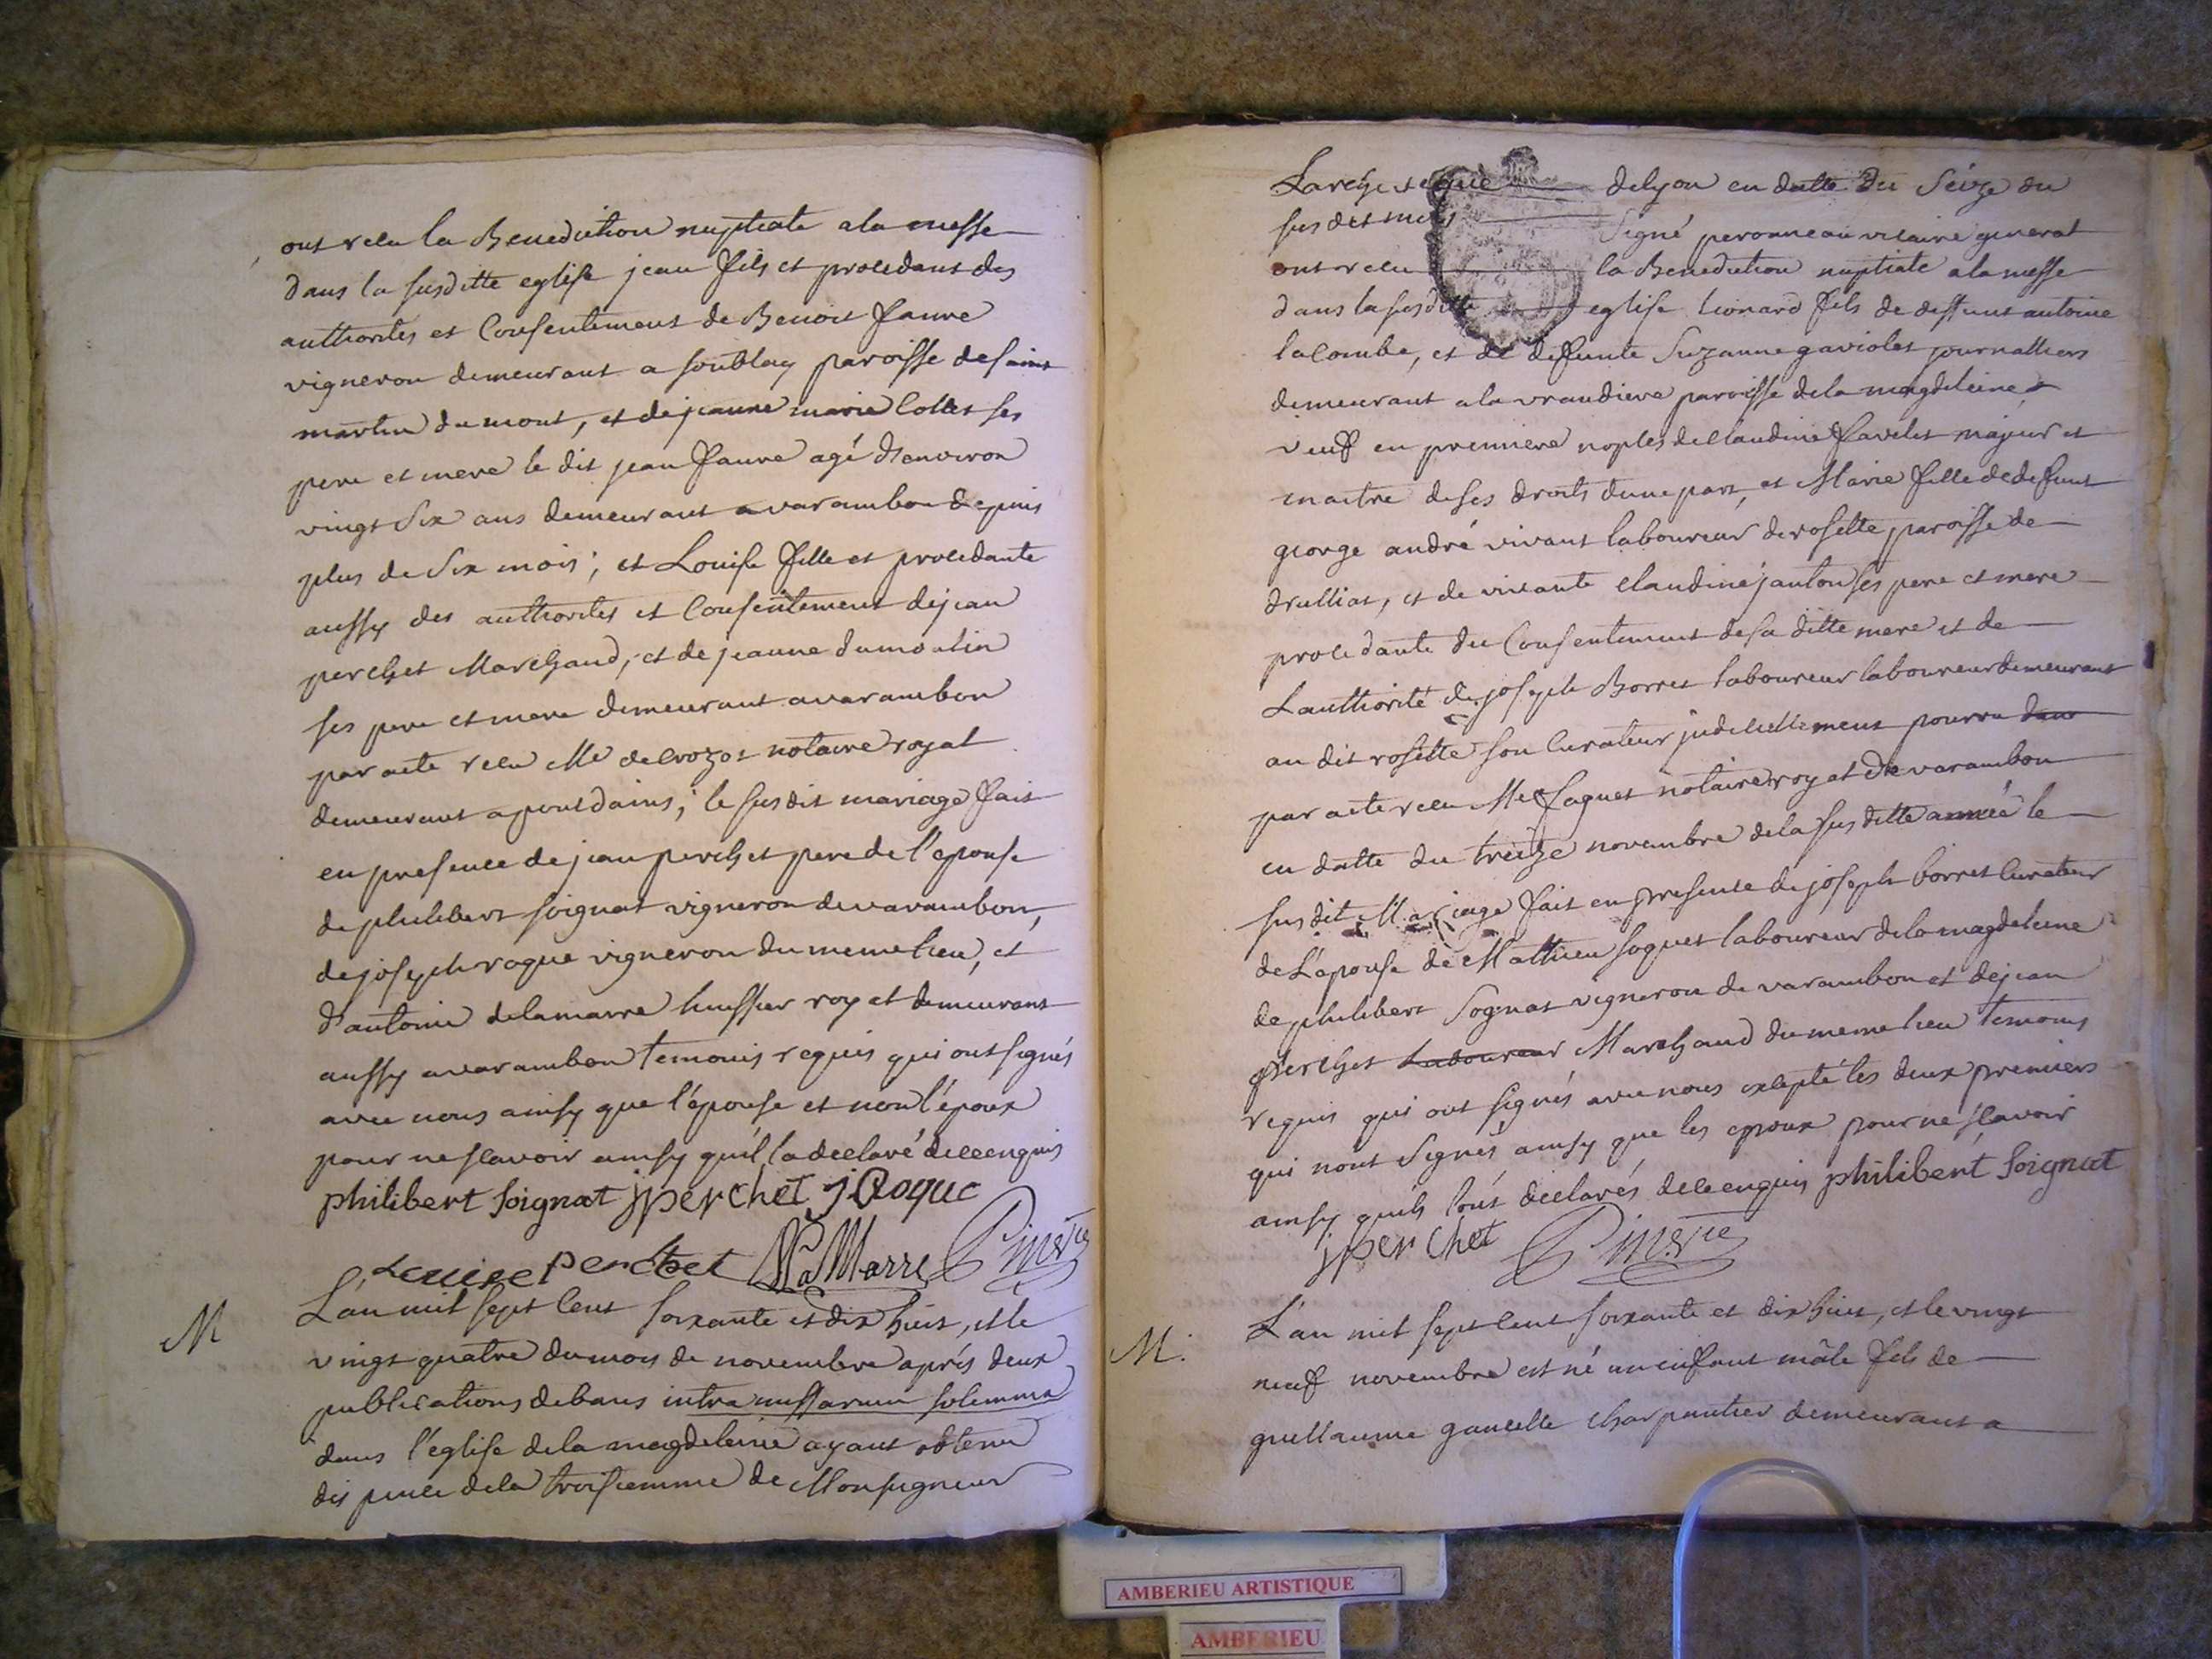 ont recu la Benediction nuptiale a la messe
dans la susditte eglise jean fils et procedant des
authorités et Consentement de Benoit faure
vigneron demeurant a soublay paroisse de saint
martin du mont, et de jeanne marie Collet ses
pere et mere le dit jean faure agé d'environ
vingt Six ans demeurant a varambon depuis
plus de Six mois; et Louise fille et procedante
aussy des authorités et Consentement de jean
perchet Marchand, et de jeanne dumoulin
ses pere et mere demeurant a varambon
par acte recu Me decrozot notaire royal
demeurant a pontdains; le susdit mariage fait
en presence de jean perchet pere de l'epouse
de philibert soignat vigneron de varambon,
de joseph roque vigneron du meme lieu, et
d'antoine delamarre huissier royal demeurant
aussy a varambon temoins requis qui ont signés
avec nous ainsy que l'épouse et non l'époux
pour ne scavoir ainsy qu'il la declaré de ce enquis
philibert soignat jperchet jRoque
Louise Perchet LaMarre
M L'an mil sept cent soixante et dix huit, et le
vingt quatre du mois de novembre aprés deux
publications de bans intra missarum solemnia
dans l'église de la magdeleine ayant obtenu
dispence de la troisiemme de Monseigneur
Larcheveque de lyon en datte du Séize du
susdit mois Signé peronneau vicaire general
ont recu la Benediction nuptiale a la messe
dans la susditte eglise leonard fils de deffunt antoine
lacombe, et de deffunte Suzanne gaviolet journalliers
demeurant a la vrandiere paroisse de la magdeleine
veuf en premiere noples de Claudine favelet majeur et
maitre de ses droits dune part, et Marie fille de defunt
george andré vivant laboureur de rosette paroisse de
druilliat, et de vivante Claudine janton ses pere et mere
procedante du Consentement de sa ditte mere et de
Lauthorité de joseph Borret laboureur laboureur demeurant
au dit rosette son Curateur judiciellement pourvu dans
par acte recu Me faguet notaire royal de varambon
en datte du treize novembre de la susditte année le
susdit Mariage fait en presence de joseph borret Curateur
de L'epouse de Mathieu soquet laboureur de la magdeleine
de philibert Sognat vigneron de varambon et de jean
perchet Laboureur Marchand du meme lieu temoins
requis qui ont signés avec nous excepté les deux premiers
qui nont Signés ainsy que les epoux pour ne scavoir
ainsy quils lont declarés de ce enquis philibert soignat
jperchet
M. L'an mil sept cent soixante et dix huit, et le vingt
neuf novembre est né un enfant mâle fils de
guillaume gancelle charpentier demeurant a
AMBERIEU ARTISTIQUE
AMBERIEU